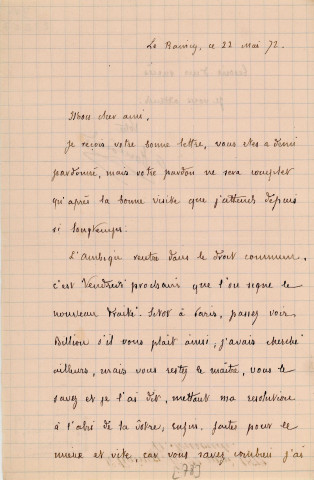 Le Raincy, ce 22 Mai 72.
Mon cher ami,
je reçois votre bonne lettre, vous êtes à demi
pardonné, mais votre pardon ne sera complet
qu'après la bonne visite que j'attends depuis
si longtemps.
L'Ambigu rentre dans le droit commun,
c'est Vendredi prochain que l'on signe le
nouveau traité. Sitôt à Paris, passez voir
Billion s'il vous plait ainsi; j'avais cherché
ailleurs, mais vous restez le maître, vous le
savez et je l'ai dit, mettant ma résolution
à l'abri de la vôtre; enfin, faites pour le
mieux et vite, car vous savez combien j'ai
[78]